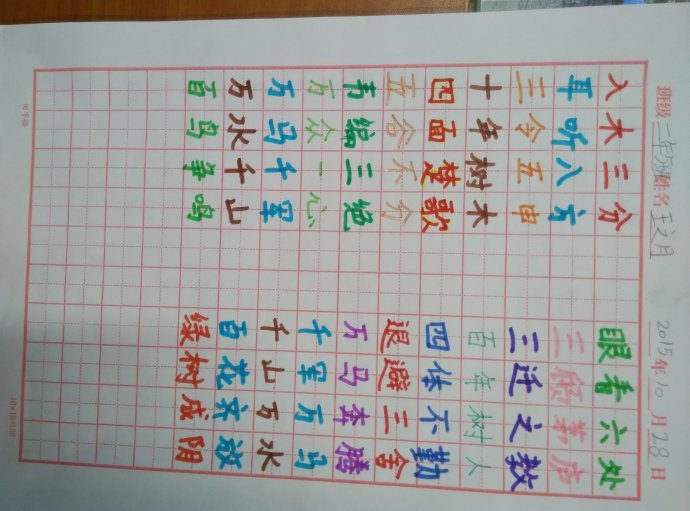 班级 二年5班 姓名 王文月 2015年10月28日
入木三分 眼看六处
耳听八方 三顾茅庐
三令五申 三迁之教
十年树木 百年树人
四面楚歌 四体不勤
五谷不分 退避三舍
韦编三绝 万马奔腾
万众一心 千军万马
万马千军 千山万水
万水千山 百花齐放
百鸟争鸣 绿树成阴